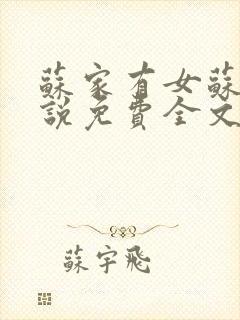 蘇家有女蘇
說免費全文
蘇宇飛